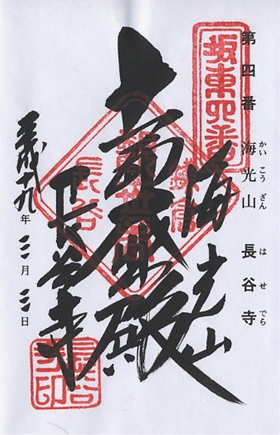 第四番 海光山 長谷寺
かいこうざん はせでら
坂東四番
海光山
十一面大悲殿
長谷寺
平成十九年三月三日